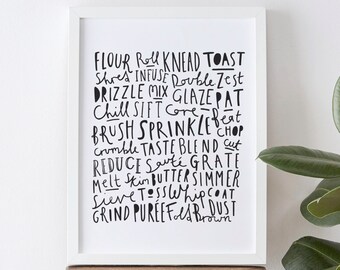 FLOUR Roll KNEAD TOAST
Shes INFUSE Double Zest
DRIZZLE MIX GLAZE PAT
Chill SIFT Core Beat
BRUSH SPRINKLE CHOP
Crumble TASTE BLEND Cut
REDUCE Sauté GRATE
Melt Skin BUTTER SIMMER
Sieve TOSS Whip COAT
GRIND PURÉE Fold Brown DUST